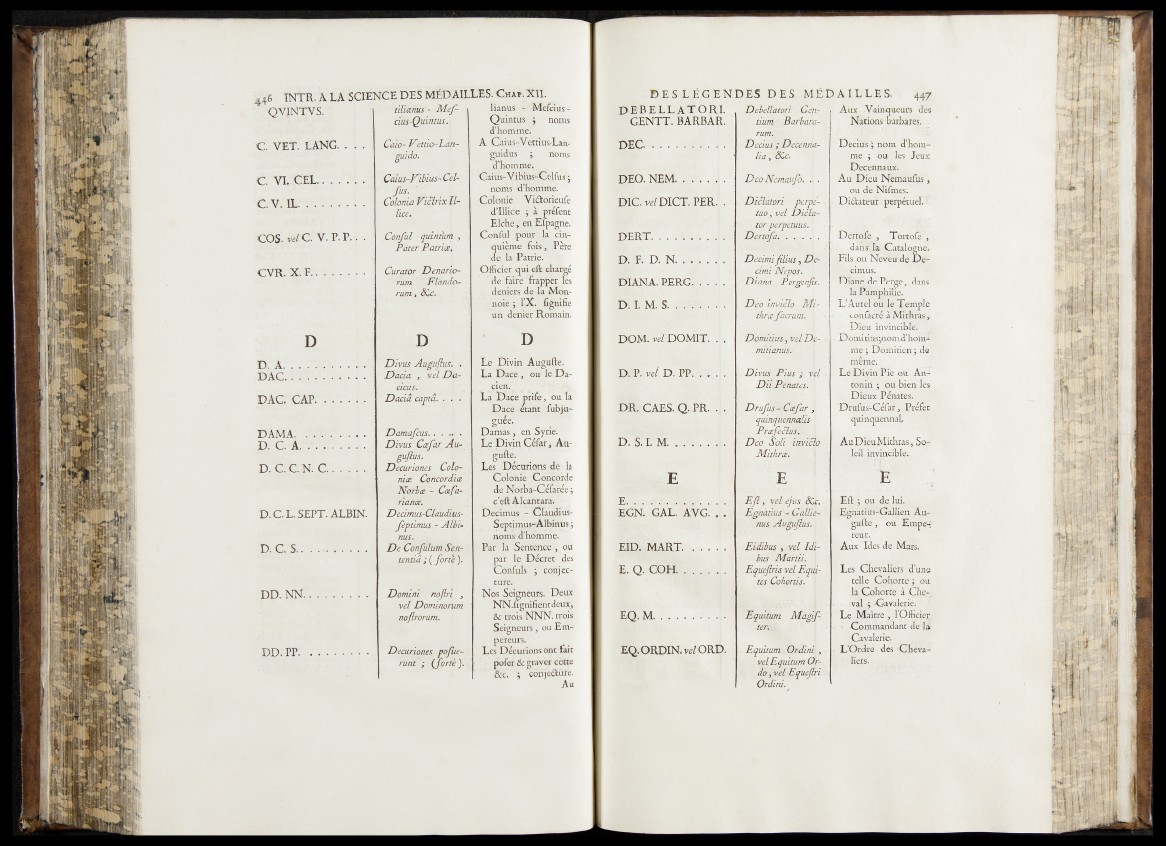 446 INTR. A LA SCIENCE DES MÉDAILLES. CHAP. XII.
QVINTVS. tilianus - Mes- lianus - Mescius-
cius-Quintus. Quintus ; noms
d'homme.
C. VET. LANG. . . . Caio-Vettio-Lan- A Caius-Vettius-Lan-
guido. guidus ; noms
d'homme.
C. VI. CEL. . . . . . . Caius-Vibius-Cel- Caius-Vibius-Celsus ;
sus. noms d'homme.
C. V. IL. . . . . . . . . Colonia Victrix Il- Colonie Victorieuse
lice. d'Illice ; à présent
Elche, en Espagne.
COS. vel C. V. P. P. . . Consul quintùm , Consul pour la cin-
Pater Patriæ. quième fois, Père
de la Patrie.
CVR. X. F. . . . . . . . Curator Denario- Officier qui est chargé
rum Flando- de faire frapper les
rum, &c. deniers de la Mon-
noie ; l'X. signifie
un denier Romain.
D D D
D. A. . . . . . . . . . . Divus Augustus. . Le Divin Auguste.
DAC. . . . . . . . . . . Dacia , vel Da- La Dace , ou le Da-
cicus. cien.
DAC. CAP. . . . . . . Daciâ captâ. . . . La Dace prise, ou la
Dace étant subju-
guée.
DAMA. . . . . . . . . Damascus. . . . . Damas , en Syrie.
D. C. A. . . . . . . . . Divus Cæsar Au- Le Divin César, Au-
gustus. guste.
D. C. C. N. C. . . . . . Decuriones Colo- Les Décurions de la
niæ Concordiæ Colonie Concorde
Norbæ - Cæsa- de Norba-Césarée ;
rianæ. c'est Alcantara.
D. C. L. SEPT. ALBIN. Decimus-Claudius- Decimus - Claudius-
septimus - Albi- Septimus-Albinus ;
nus. noms d'homme.
D. C. S. . . . . . . . . . De Consulum Sen- Par la Sentence , ou
tentiâ ; ( fortè ). par le Décret des
Consuls ; conjec-
ture.
DD. NN. . . . . . . . . Domini nostri , Nos Seigneurs. Deux
vel Dominorum NN. signifient deux,
nostrorum. & trois NNN. trois
Seigneurs , ou Em-
pereurs.
DD. PP. . . . . . . . . Decuriones posue- Les Décurions ont fait
runt ; (fortè ). poser & graver cette
&c. ; conjecture.
Au
DES LÉGENDES DES MÉDAILLES. 447
DEBELLATORI. Debellatori Gen- Aux Vainqueurs des
GENTT. BARBAR. tium Barbara- Nations barbares.
rum.
DEC. . . . . . . . . . . Decius ; Decenna- Decius ; nom d'hom-
lia, &c. me ; ou les Jeux
Decennaux.
DEO. NEM. . . . . . . Deo Nemauso. . . Au Dieu Nemausus ,
ou de Nismes.
DIC. vel DICT. PER. . Dictatori perpe- Dictateur perpétuel.
tuo, vel Dicta-
tor perpetuus.
DERT. . . . . . . . . . Dertosa. . . . . . Dertose , Tortose ,
dans la Catalogne.
D. F. D. N. . . . . . . . Decimi filius, De- Fils ou Neveu de De-
cimi Nepos. cimus.
DIANA. PERG. . . . . Diana Pergensis. Diane de Perge, dans
la Pamphilie.
D. I. M. S. . . . . . . . Deo invicto Mi- L'Autel ou le Temple
thræ sacrum. consacré à Mithras,
Dieu invincible.
DOM. vel DOMIT. . . Domitius, vel Do- Domitius; nom d'hom-
mitianus. me ; Domitien ; de
même.
D. P. vel D. PP. . . . . Divus Pius ; vel Le Divin Pie ou An-
Dii Penates. tonin ; ou bien les
Dieux Pénates.
DR. CAES. Q. PR. . . Drusus - Cæsar , Drusus-César, Préfet
quinquennalis quinquennal.
Præfectus.
D. S. I. M. . . . . . . . Deo Soli invicto Au Dieu Mithras, So-
Mithræ. leil invincible.
E E E
E. . . . . . . . . . . . . Est, vel ejus &c. Est ; ou de lui.
EGN. GAL. AVG. . . Egnatius - Gallie- Egnatius-Gallien Au-
nus Augustus. guste , ou Empe-
reur.
EID. MART. . . . . . Eidibus , vel Idi- Aux Ides de Mars.
bus Martii.
E. Q. COH. . . . . . . Equestris vel Equi- Les Chevaliers d'une
tes Cohortis. telle Cohorte ; ou
la Cohorte à Che-
val ; Cavalerie.
EQ. M. . . . . . . . . . Equitum Magis- Le Maître , l'Officier
ter. Commandant de la
Cavalerie.
EQ. ORDIN. vel ORD. Equitum Ordini , L'Ordre des Cheva-
vel Equitum Or- liers.
do, vel Equestri
Ordini.